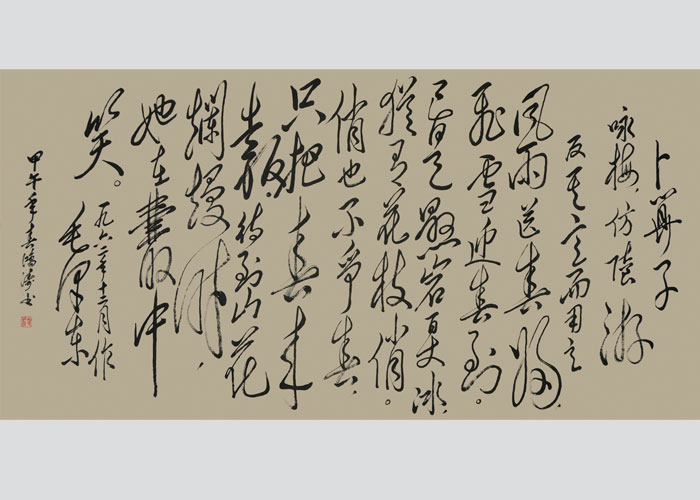 卜算子
咏梅，仿陸游
反其意而用之
风雨送春归，
飞雪迎春到。
已是悬岩百丈冰，
犹有花枝俏。
俏也不争春，
只把春来
报，待到山花
爛漫时，
她在叢中
笑。
一九六一年十二月作
毛泽东
甲午年春鸿涛书